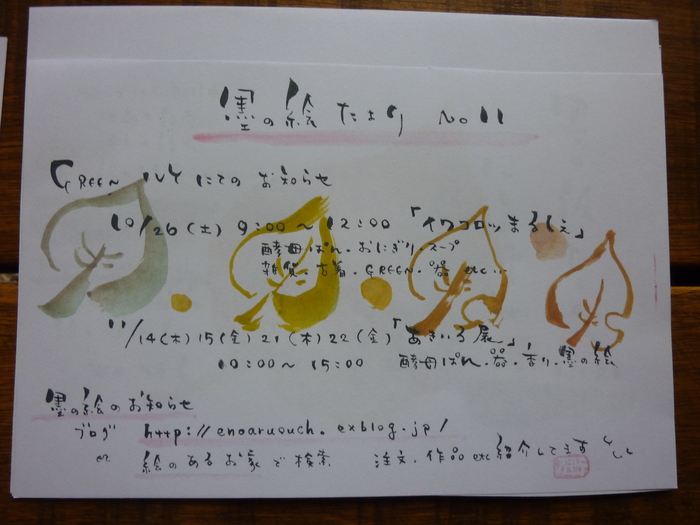 墨の絵たより No11
GREEN IVY にての お知らせ
10/26(土) 9:00〜12:00 「イワコロッまるしぇ」
酵母ぱん.おにぎり.スープ
雑貨.古着.GREEN.器 etc...
11/14(木)15(金)21(木)22(金)「あきいろ展」
10:00〜15:00 酵母ぱん.器.香り.墨の絵
墨の絵のお知らせ
ブログ http://enoaruouch.exblog.jp/
or 絵のあるお家で検索 注文.作品etc紹介してます